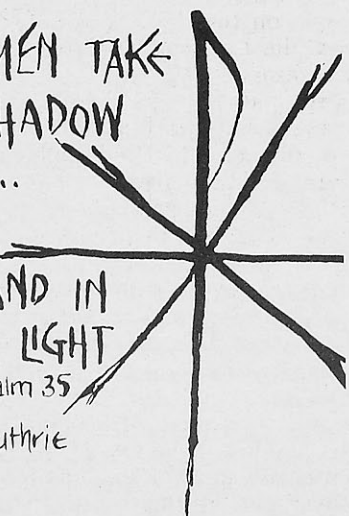 MEN TAKE
SHADOW
...
AND IN
LIGHT
alm 35
uthrie